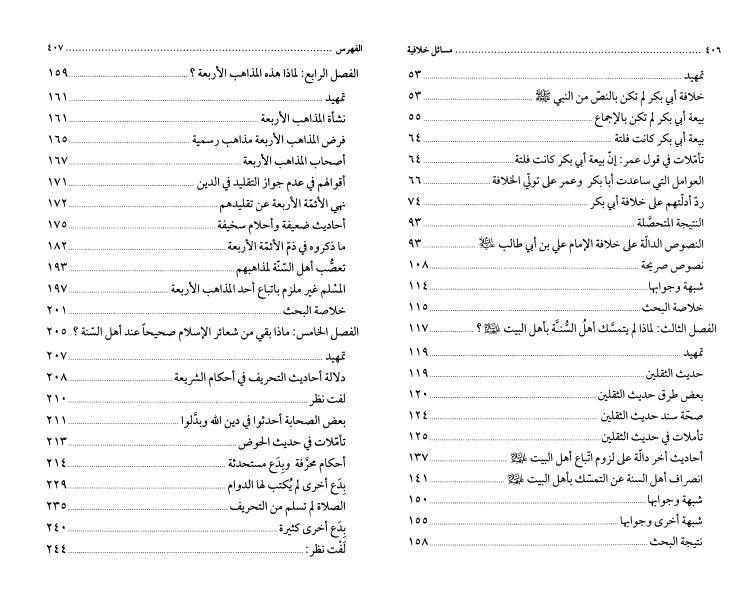 ٤٠٦ ........ مسائل خلافية
تمهيد ........ ٥٣
خلافة أبي بكر لم تكن بالنصّ من النبي ﷺ ........ ٥٣
بيعة أبي بكر لم تكن بالإجماع ........ ٥٥
بيعة أبي بكر كانت فلتة ........ ٦٤
تأمّلات في قول عمر: إنّ بيعة أبي بكر كانت فلتة ........ ٦٤
العوامل التي ساعدت أبا بكر وعمر على تولّي الخلافة ........ ٦٦
ردّ أدلّتهم على خلافة أبي بكر ........ ٧٤
النتيجة المتحصّلة ........ ٩٣
النصوص الدالّة على خلافة الإمام علي بن أبي طالب ........ ٩٣
نصوص صريحة ........ ١٠٨
شبهة وجوابها ........ ١١٤
خلاصة البحث ........ ١١٥
الفصل الثالث: لماذا لم يتمسّك أهلُ السُّنـة بأهل البيت ؟ ........ ١١٧
تمهيد ........ ١١٩
حديث الثقلين ........ ١١٩
بعض طرق حديث الثقلين ........ ١٢٠
صحّة سند حديث الثقلين ........ ١٢٤
تأملات في حديث الثقلين ........ ١٢٥
أحاديث أخر دالّة على لزوم اتّباع أهل البيت ........ ١٣٧
انصراف أهل السنة عن التمسّك بأهل البيت ........ ١٤١
شبهة وجوابها ........ ١٥٠
شبهة أخرى وجوابها ........ ١٥٥
نتيجة البحث ........ ١٥٨
الفهرس ........ ٤٠٧
الفصل الرابع: لماذا هذه المذاهب الأربعة ؟ ........ ١٥٩
تمهيد ........ ١٦١
نشأة المذاهب الأربعة ........ ١٦١
فرض المذاهب الأربعة مذاهب رسمية ........ ١٦٥
أصحاب المذاهب الأربعة ........ ١٦٧
أقوالهم في عدم جواز التقليد في الدين ........ ١٧١
نهي الأئمّة الأربعة عن تقليدهم ........ ١٧٢
أحاديث ضعيفة وأحلام سخيفة ........ ١٧٥
ما ذكروه في ذمّ الأئمّة الأربعة ........ ١٨٢
تعصُّب أهل السّنّة لمذاهبهم ........ ١٩٣
المسْلم غير ملزم باتباع أحد المذاهب الأربعة ........ ١٩٧
خلاصة البحث ........ ٢٠١
الفصل الخامس: ماذا بقي من شعائر الإسلام صحيحاً عند أهل السّنة ؟ .. ٢٠٥
تمهيد ........ ٢٠٧
دلالة أحاديث التحريف في أحكام الشريعة ........ ٢٠٨
لفت نظر ........ ٢١٠
بعض الصحابة أحدثوا في دين الله وبدَّلوا ........ ٢١١
تأمّلات في حديث الحوض ........ ٢١٣
أحكام محرَّفة وبِدَع مستحدثة ........ ٢١٤
بِدَع أخرى لم يُكتب لها الدوام ........ ٢٢٩
الصلاة لم تسلم من التحريف ........ ٢٣٥
بِدَع أخرى كثيرة ........ ٢٤٠
لَفْت نظر : ........ ٢٤٤